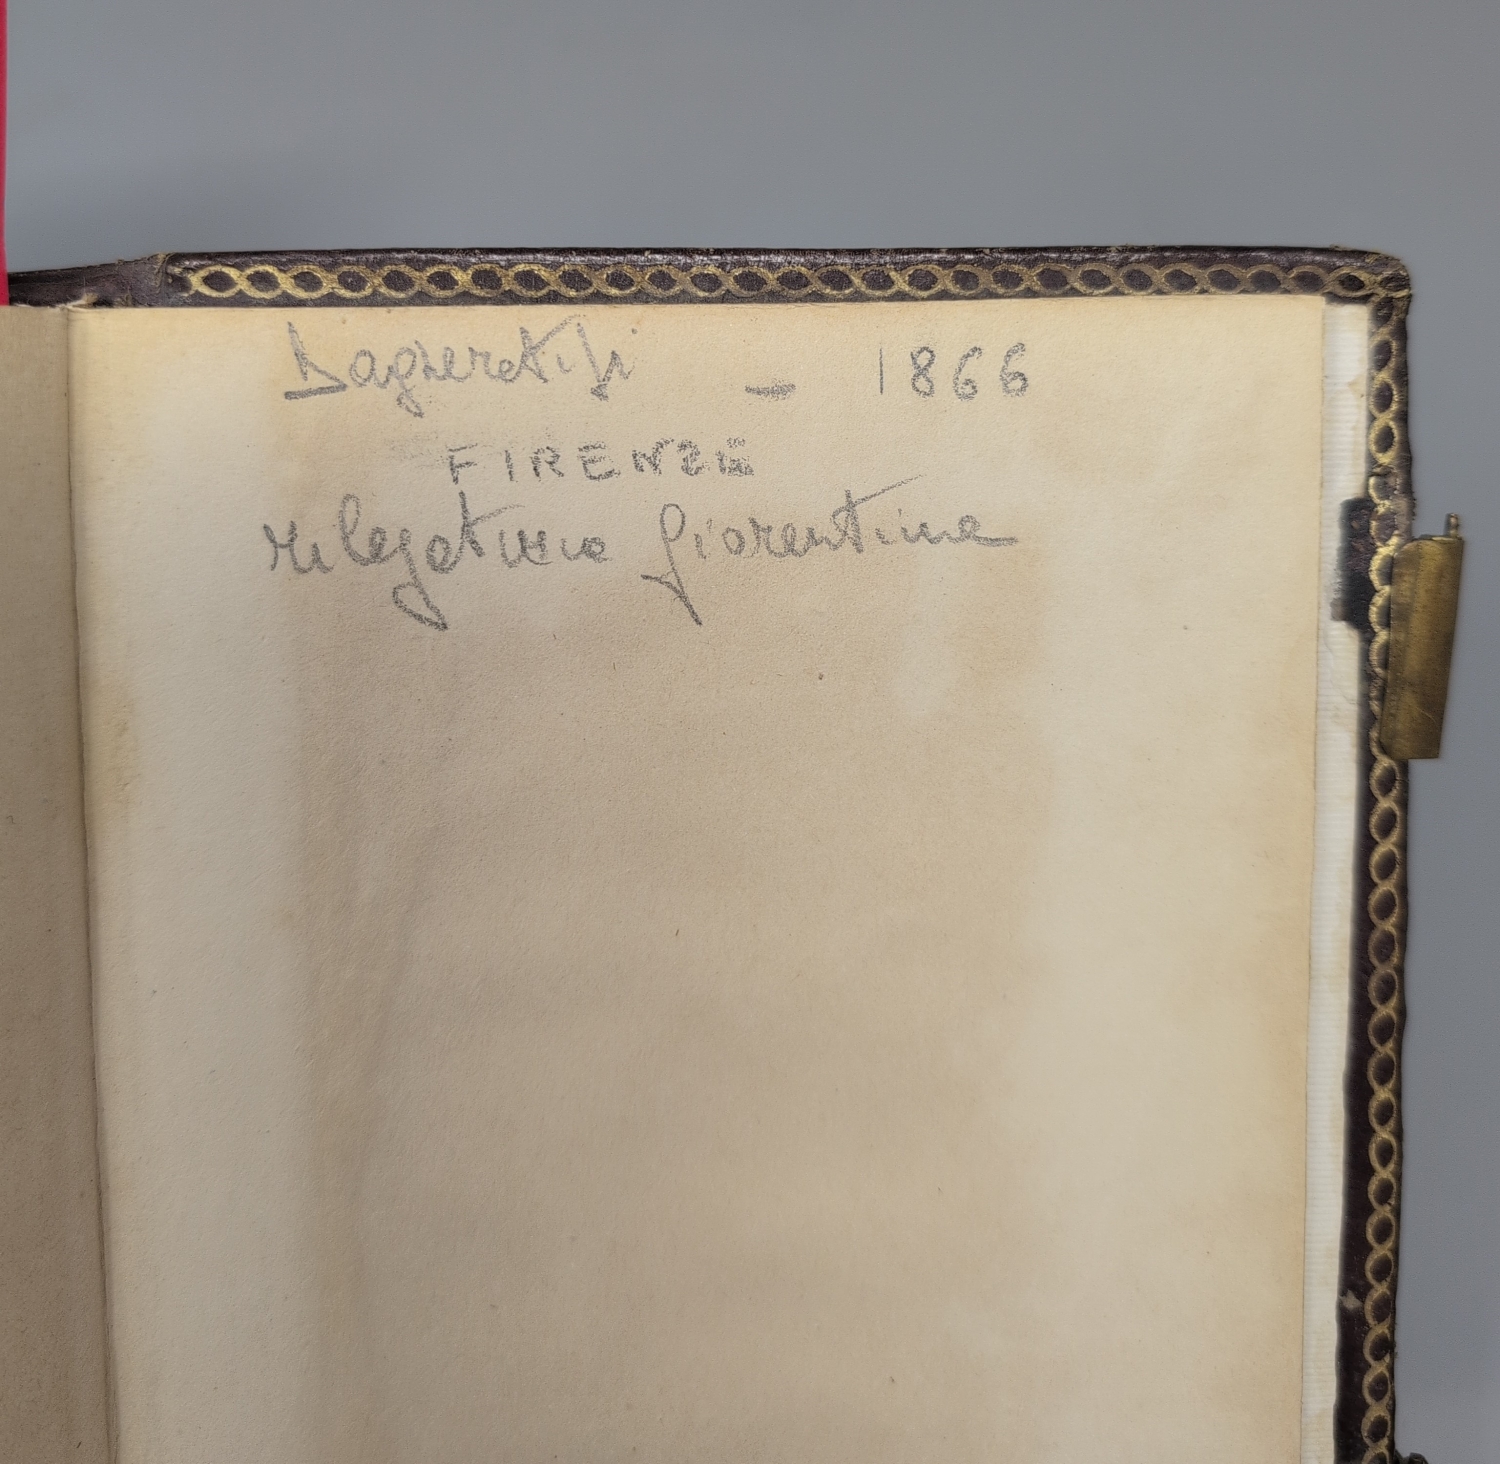 Dagherotipi - 1866
FIRENZE
rilegatura fiorentina